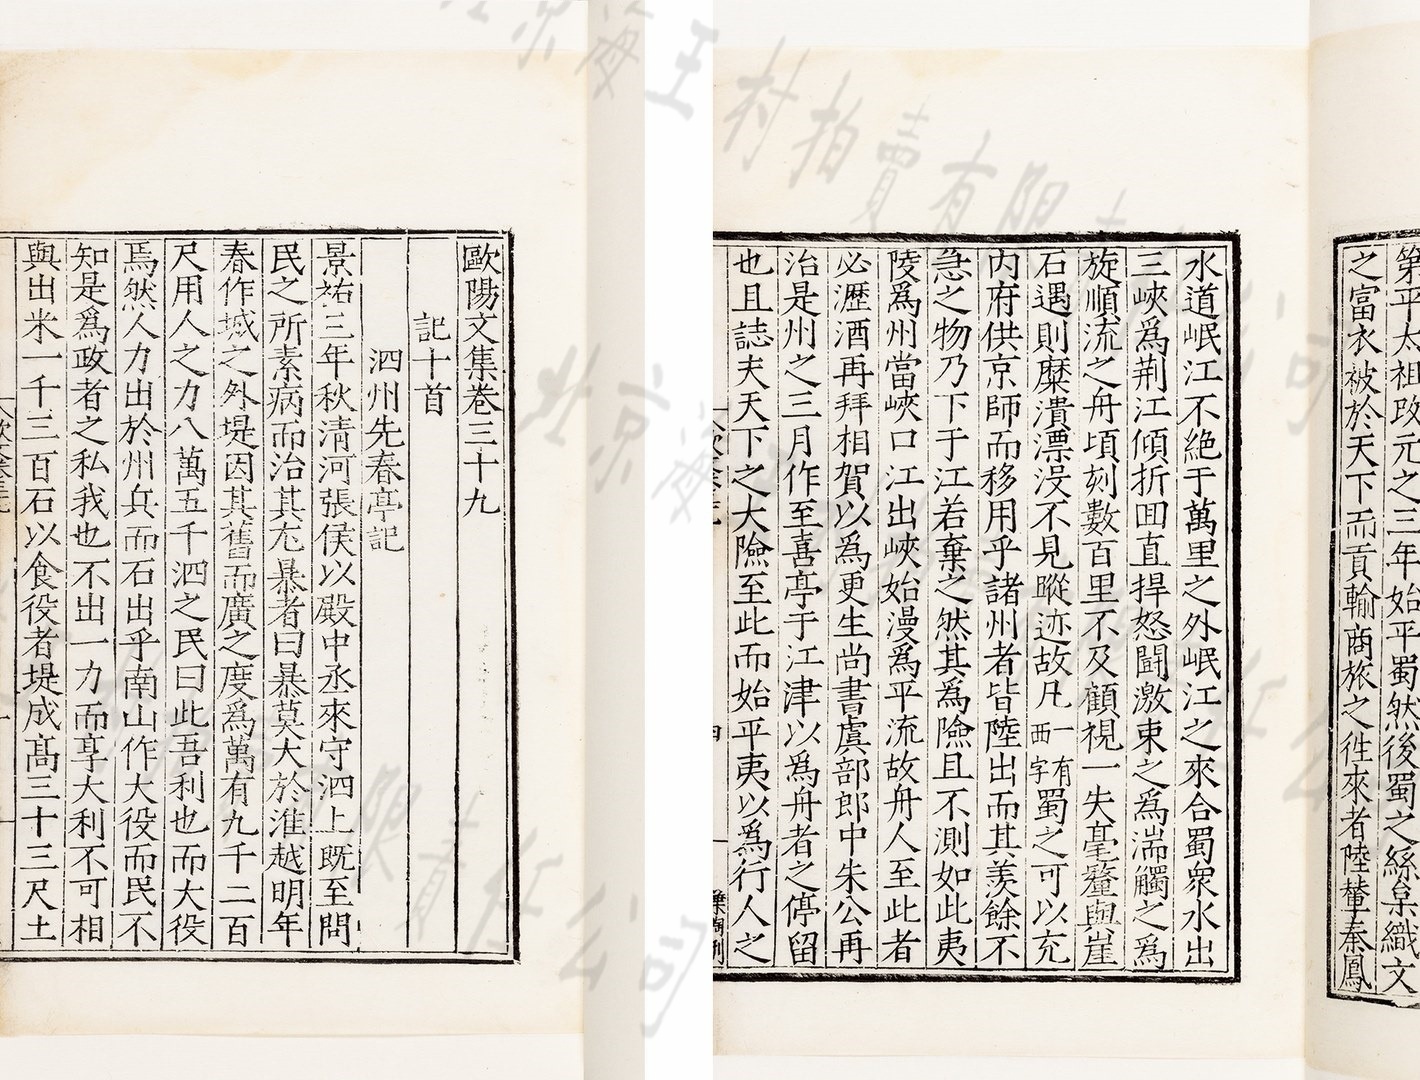 第平太祖改元之三年始平蜀然後蜀之絲枲織文
之富衣被於天下而貢輸商旅之徃來者陸輦秦鳳
水道岷江不絕于萬里之外岷江之來合蜀衆水出
三峽爲荆江傾折囬直捍怒鬪激束之爲湍觸之爲
旋順流之舟頃刻數百里不及顧視一失毫釐與崖
石遇則糜潰漂没不見蹤迹故凡一有西字蜀之可以充
内府供京師而移用乎諸州者皆陸出而其羨餘不
急之物乃下于江若棄之然其爲險且不測如此夷
陵爲州當峽口江出峽始漫爲平流故舟人至此者
必瀝酒再拜相賀以爲更生尚書虞部郎中朱公再
治是州之三月作至喜亭于江津以爲舟者之停留
也且誌夫天下之大險至此而始平夷以爲行人之
四
歐陽文集卷三十九
記十首
泗州先春亭記
景祐三年秋清河張侯以殿中丞來守泗上既至問
民之所素病而治其尤暴者曰暴莫大於淮越明年
春作城之外堤因其舊而廣之度爲萬有九千二百
尺用人之力八萬五千泗之民曰此吾利也而大役
焉然人力出於州兵而石出乎南山作大役而民不
知是爲政者之私我也不出一力而享大利不可相
與出米一千三百石以食役者堤成高三十三尺土
北京海王村拍賣有限責任公司
北京海王村拍賣有限責任公司